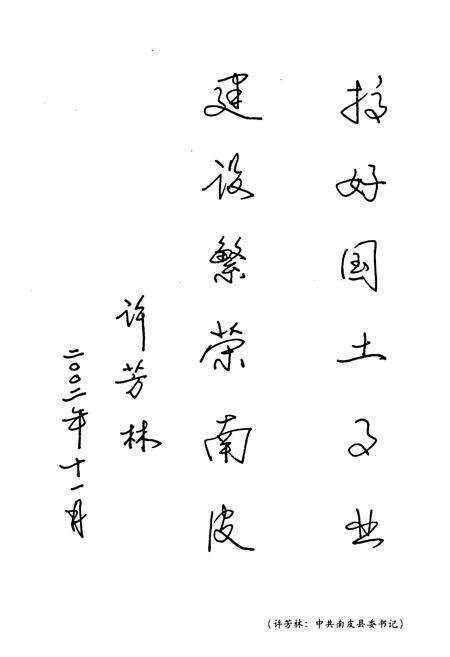 搞好国土事业
建设繁荣南皮
许芳林
二〇〇二年十一月
(许芳林：中共南皮县委书记)